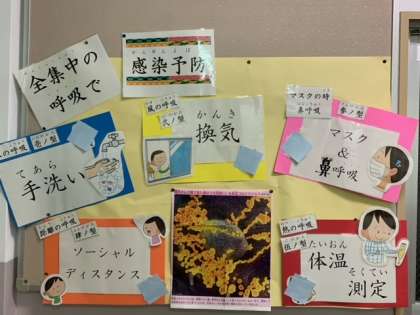 全集中の
呼吸で
かんせんよぼう
感染予防
の呼吸
壱ノ型
てあら
手洗い
風の呼吸
弐ノ型
かんき
換気
マスクの時
鼻呼吸
参ノ型
マスク
&
鼻呼吸
距離の呼吸
肆ノ型
ソーシャル
ディスタンス
熱の呼吸
伍ノ型
たいおん
体温
そくてい
測定